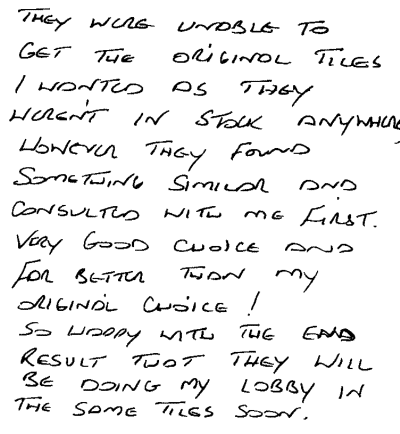 THEY WERE UNABLE TO
GET THE ORIGINAL TILES
I WANTED AS THEY
WEREN'T IN STOCK ANYWHERE,
HOWEVER THEY FOUND
SOMETHING SIMILAR AND
CONSULTED WITH ME FIRST.
VERY GOOD CHOICE AND
FAR BETTER THAN MY
ORIGINAL CHOICE!
SO HAPPY WITH THE END
RESULT THAT THEY WILL
BE DOING MY LOBBY IN
THE SAME TILES SOON.